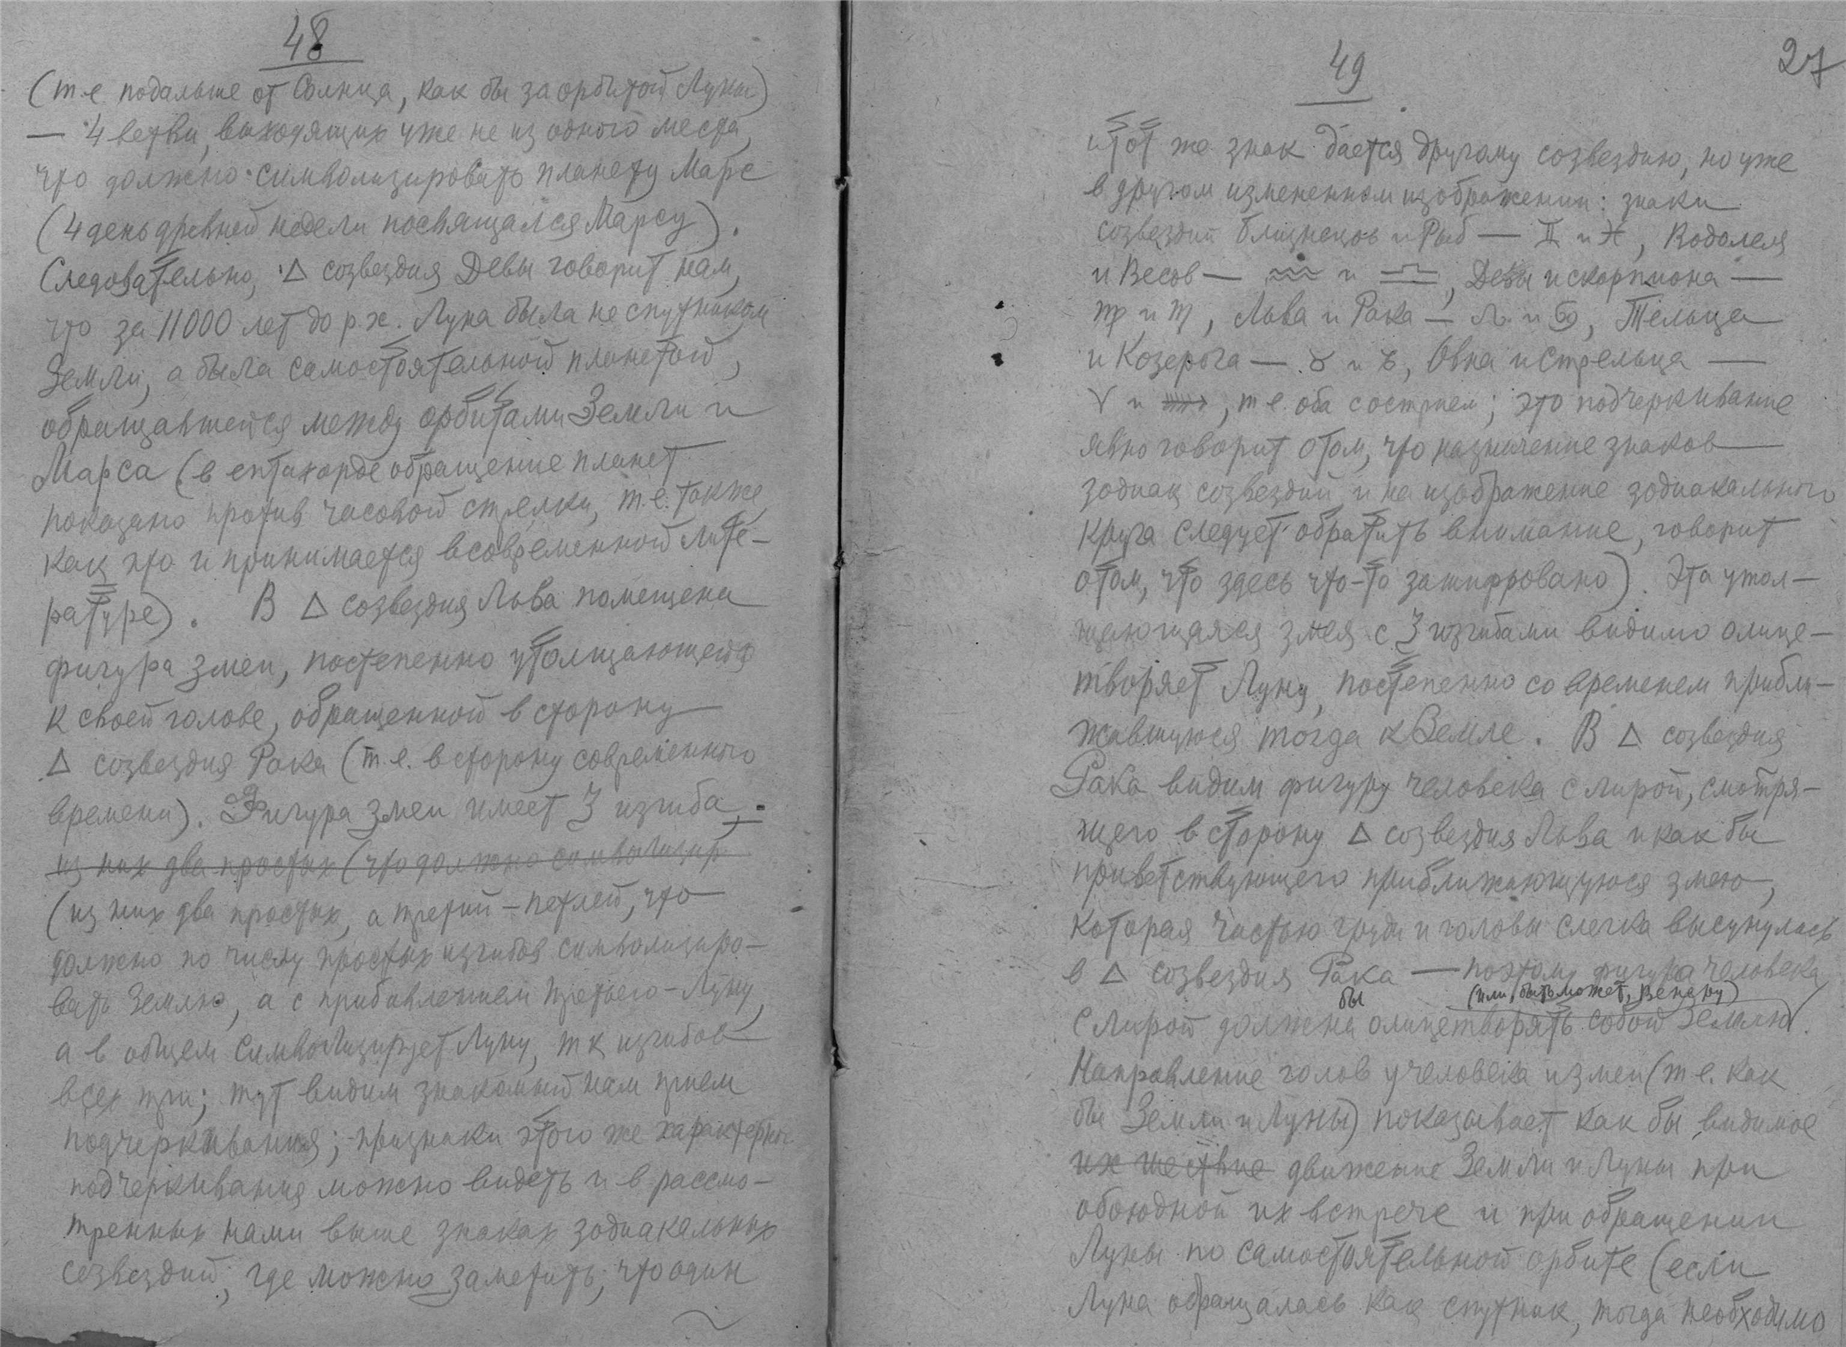 48
(т.е. подальше от Солнца, как бы за орбитой Луны)
— 4 ветви, выходящих уже не из одного места,
что должно символизировать планету Марс
(4 день древней недели посвящался Марсу).
Следовательно, △ созвездия Девы говорит нам,
что за 11000 лет до р.х. Луна была не спутником
Земли, а была самостоятельной планетой,
обращавшейся между орбитами Земли и
Марса (в ептахорде обращение планет
показано против часовой стрелки, т.е. также
как это и принимается в современной лите-
ратуре). В △ созвездия Льва помещена
фигура змеи, постепенно утолщающейся
к своей голове, обращенной в сторону
△ созвездия Рака (т.е. в сторону современного
времени). Фигура змеи имеет 3 изгиба,
из них два простых (что должно символизир
(из них два простых, а третий – петлей, что
должно по числу простых изгибов символизиро-
вать Землю, а с прибавлением третьего – Луну,
а в общем символизирует Луну, т к изгибов
всех три; тут видим знакомый нам прием
подчеркивания; признаки этого же характерного
подчеркивания можно видеть и в рассмо-
тренных нами выше знаках зодиакальных
созвездий, где можно заметить, что один
49
27
и тот же знак дается другому созвездию, но уже
в другом измененном изображении: знаки
созвездий Близнецов и Рыб — ♊ и ♓, Водолея
и Весов — ♒ и ♎, Девы и скорпиона —
♍ и ♏, Льва и Рака — ♌ и ♋, Тельца
и Козерога — ♉ и ♑, Овна и Стрельца —
♈ и ♐, т е. оба с острием; это подчеркивание
явно говорит о том, что назначение знаков
зодиак созвездий и на изображение зодиакального
круга следует обратить внимание, говорит
о том, что здесь что-то зашифровано). Эта утол-
щающаяся змея с 3 изгибами видимо олице-
творяет Луну, постепенно со временем прибли-
жавшуюся тогда к Земле. В △ созвездия
Рака видим фигуру человека с лирой, смотря-
щего в сторону △ созвездия Льва и как бы
приветствующего приближающуюся змею,
которая частью груди и головы слегка высунулась
в △ созвездия Рака — поэтому фигура человека
бы (или, быть может, Венеру)
с лирой должна олицетворять собой Землю.
Направление голов у человека и змеи (т е. как
бы Земли и Луны) показывает как бы видимое
их шествие движение Земли и Луны при
обоюдной их встрече и при обращении
Луны по самостоятельной орбите (если
Луна обращалась как спутник, тогда необходимо